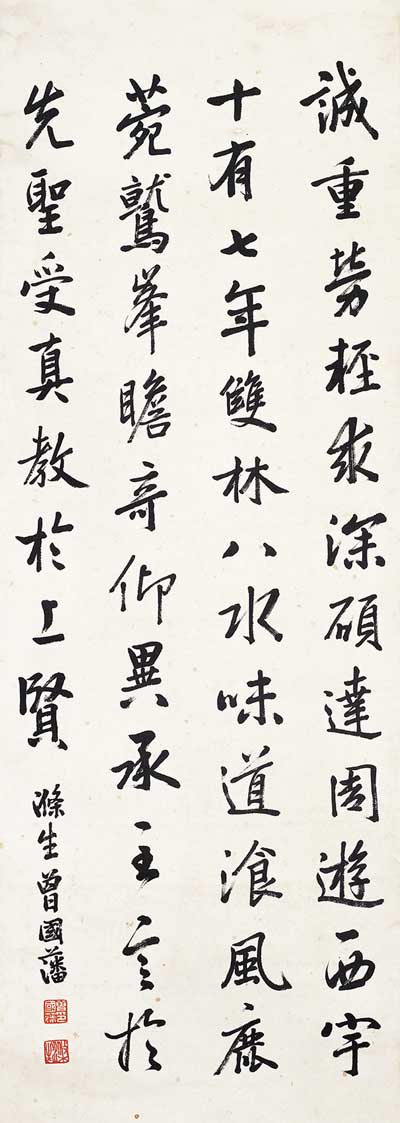 誠重勞輕求深碩達周遊西宇
十有七年雙林八水味道湌風鹿
菀鷲峯瞻奇仰異承至言於
先聖受真教於上賢
滌生曾國藩